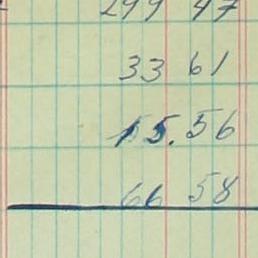 299 47
33 61
15.56
66 58